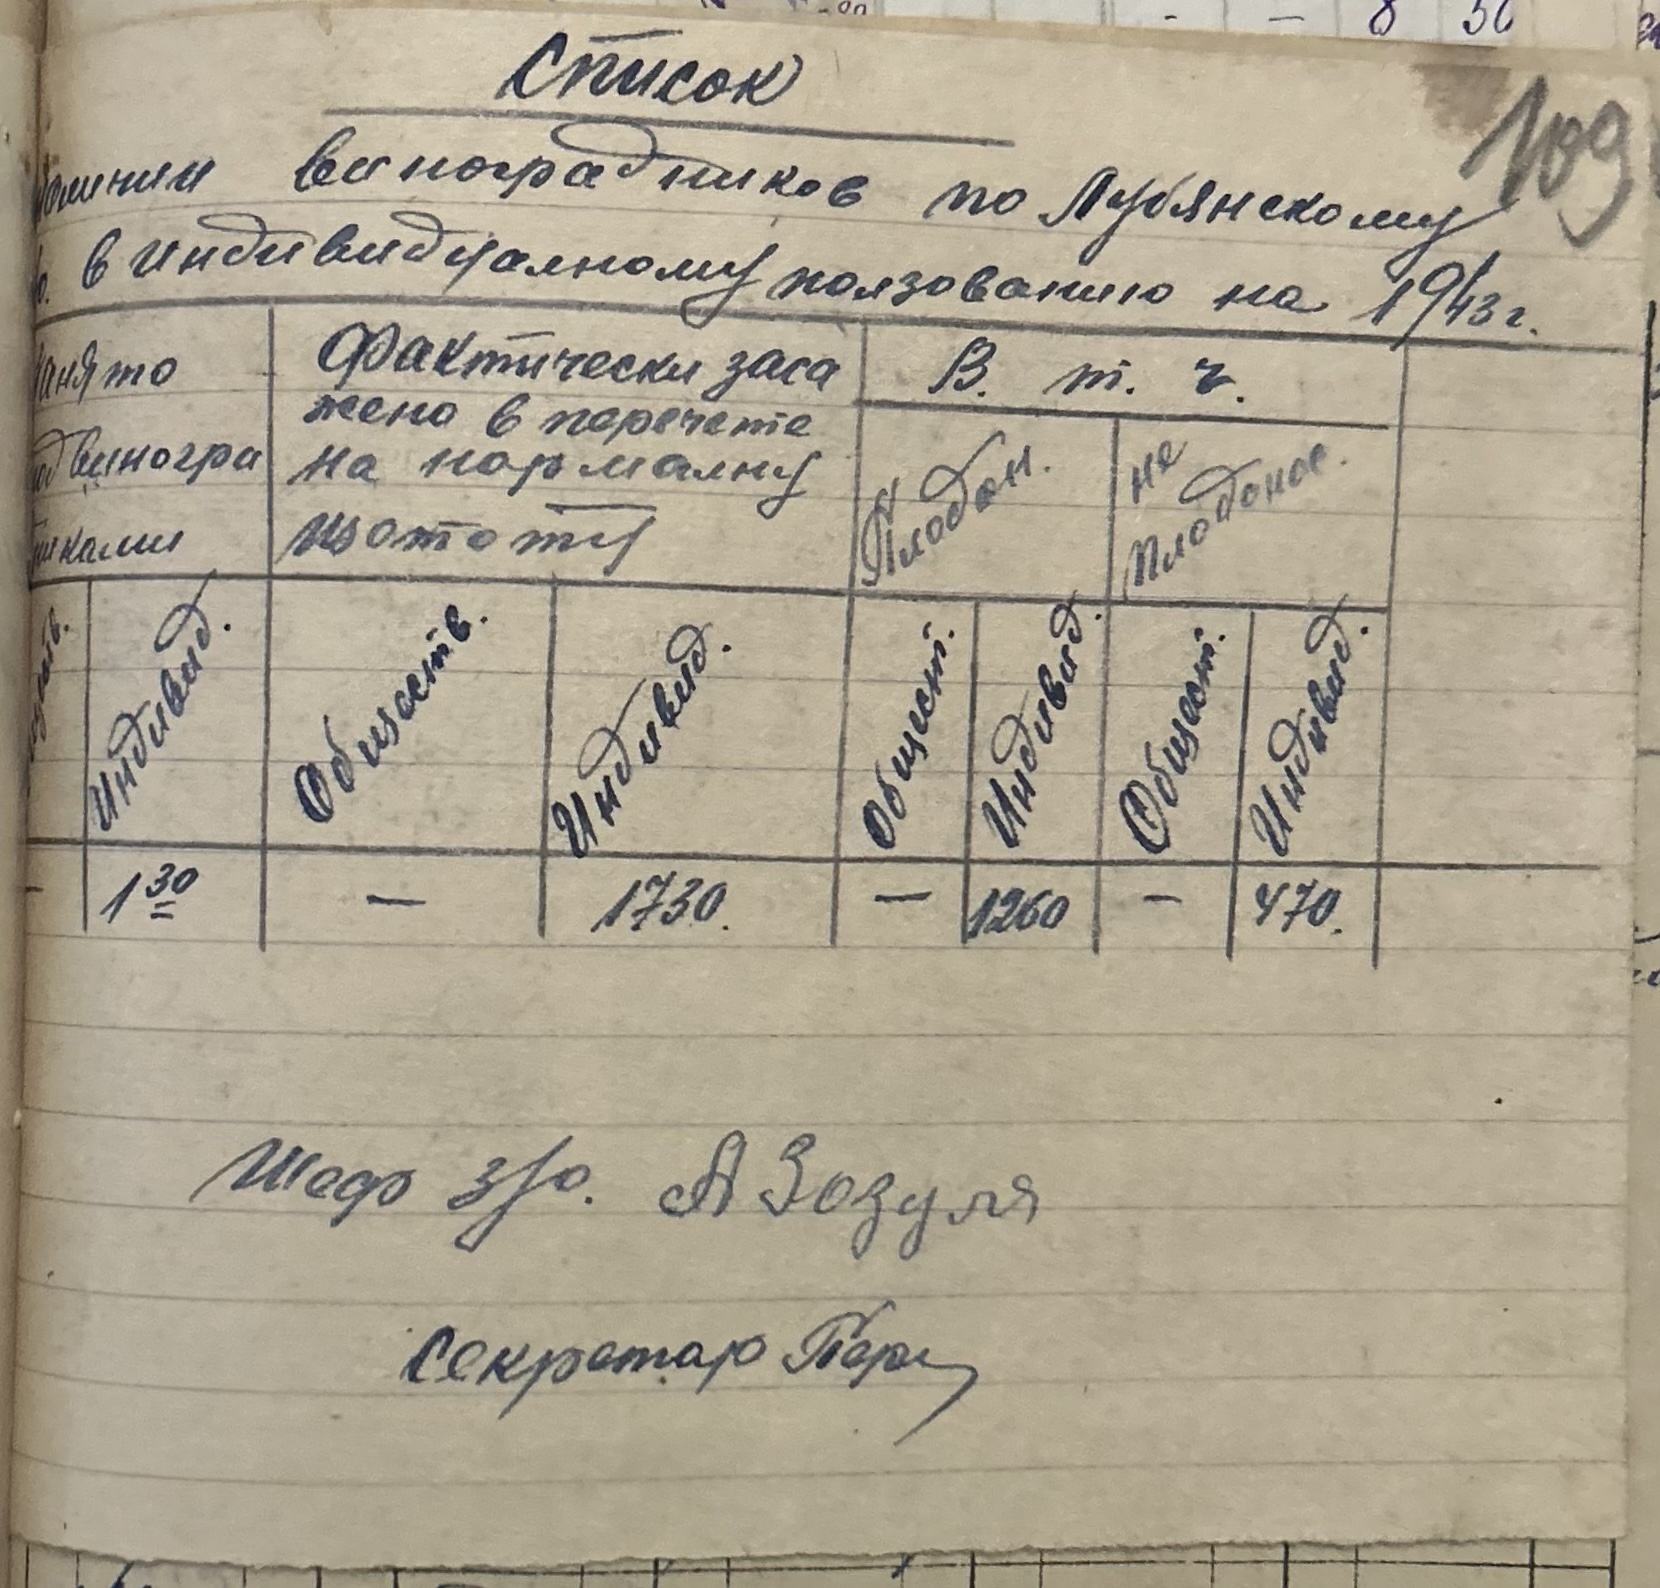 Список
109
виноградников по Лубянскому
в индивидуалному ползованию на 1943 г.
Фактически заса
жено в перечете
на нормалну
В. т. ч.
Плодон.
не
плодонос.
Индивид.
Обществ.
Индивид.
Общест.
Индивид.
Общест.
Индивид.
— 1 30 — 1730. — 1260 — 470.
Шеф з/о. А Зозуля
Секретар